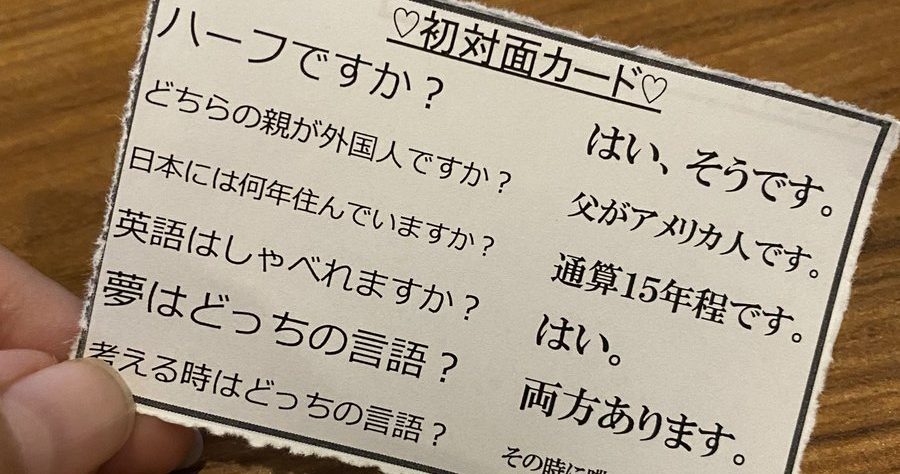 ♡初対面カード♡
ハーフですか？
はい、そうです。
どちらの親が外国人ですか？
父がアメリカ人です。
日本には何年住んでいますか？
通算15年程です。
英語はしゃべれますか？
はい。
夢はどっちの言語？
両方あります。
考える時はどっちの言語？
その時に